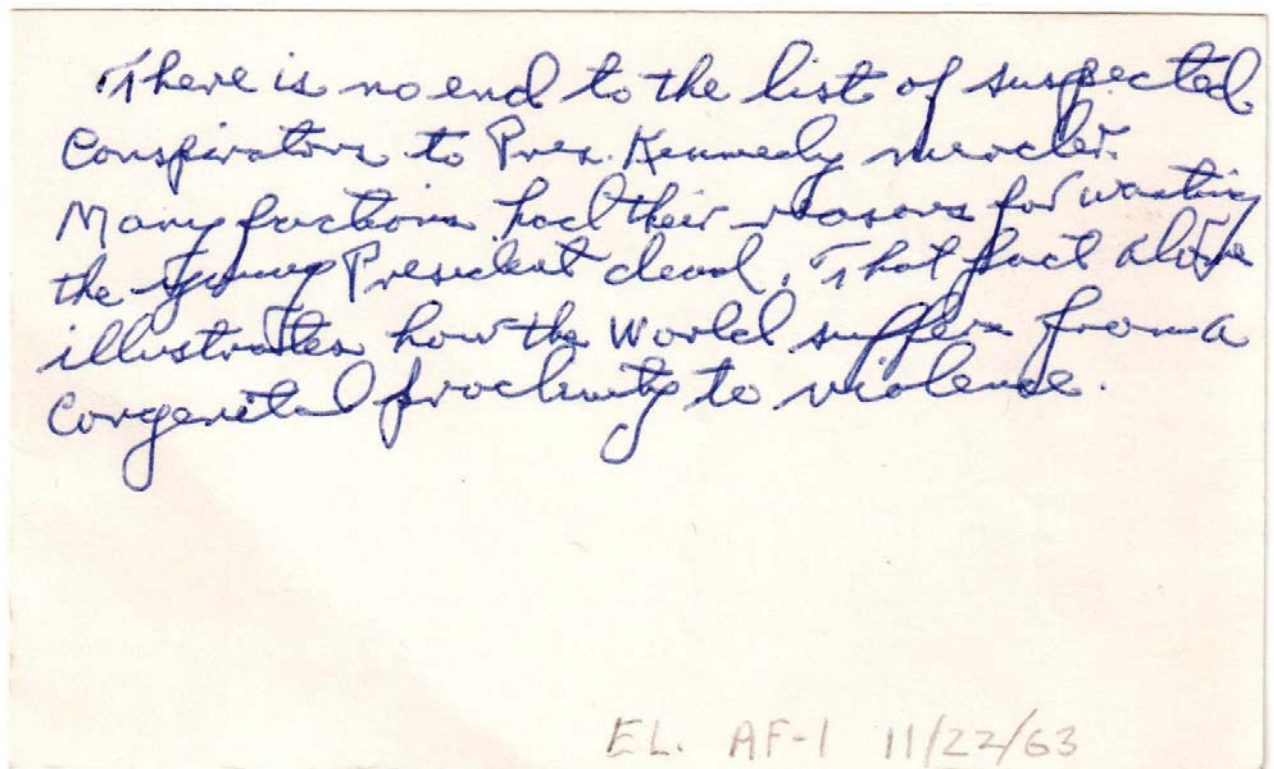 There is no end to the list of suspected
Conspirators to Pres. Kennedy murder.
Many factions had their reasons for wanting
the young President dead. That fact alone
illustrates how the World suffers from a
Congenital proclivity to violence.
EL. AF-1 11/22/63